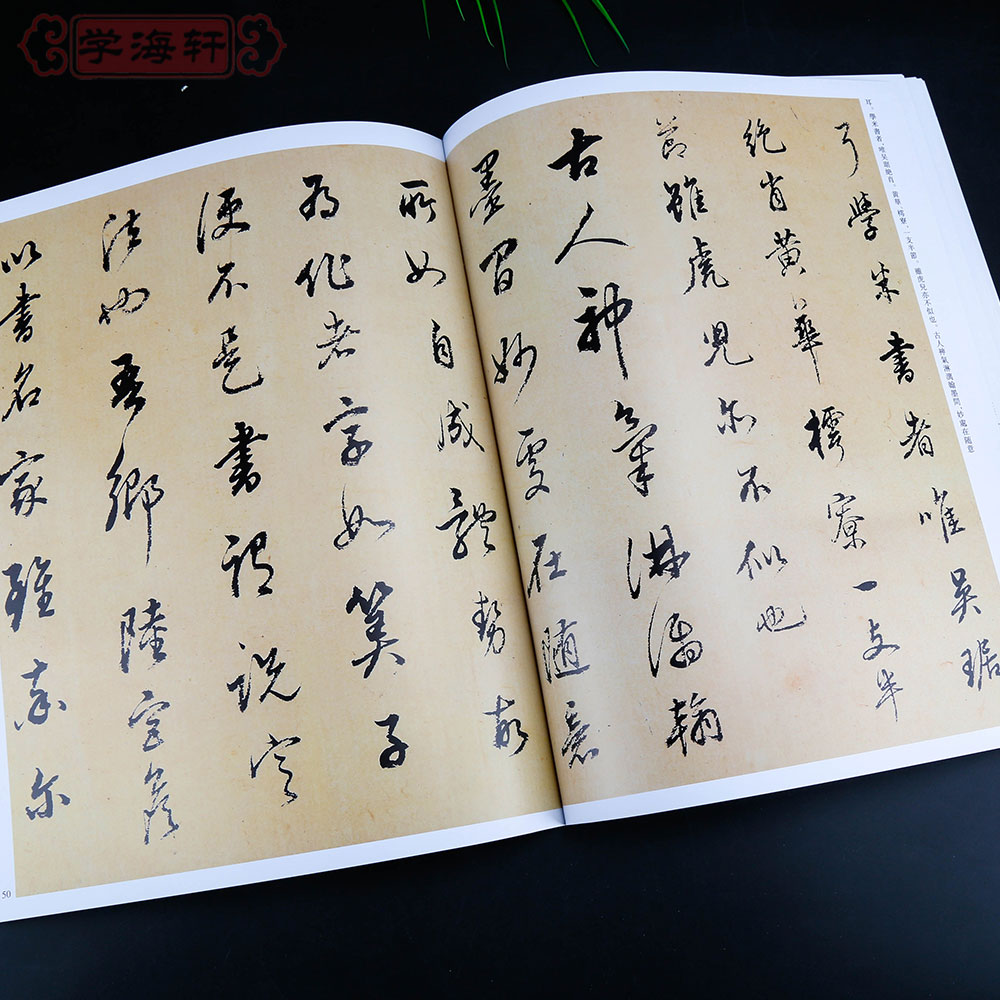 学海轩
耳。學米書者，唯吳琚絕肖。黃華、樗寮，一支半節，雖虎兒亦不似也。古人神氣淋漓翰墨間，妙處在隨意
耳學米書者唯吳琚
絕肖黃華樗寮一支半
節雖虎兒亦不似也
古人神氣淋漓翰
墨間妙處在隨意
所如自成體勢故
為作者字如筭子
便不是書謂說定
法也吾鄉陸宮詹
以書名家雖率爾
50